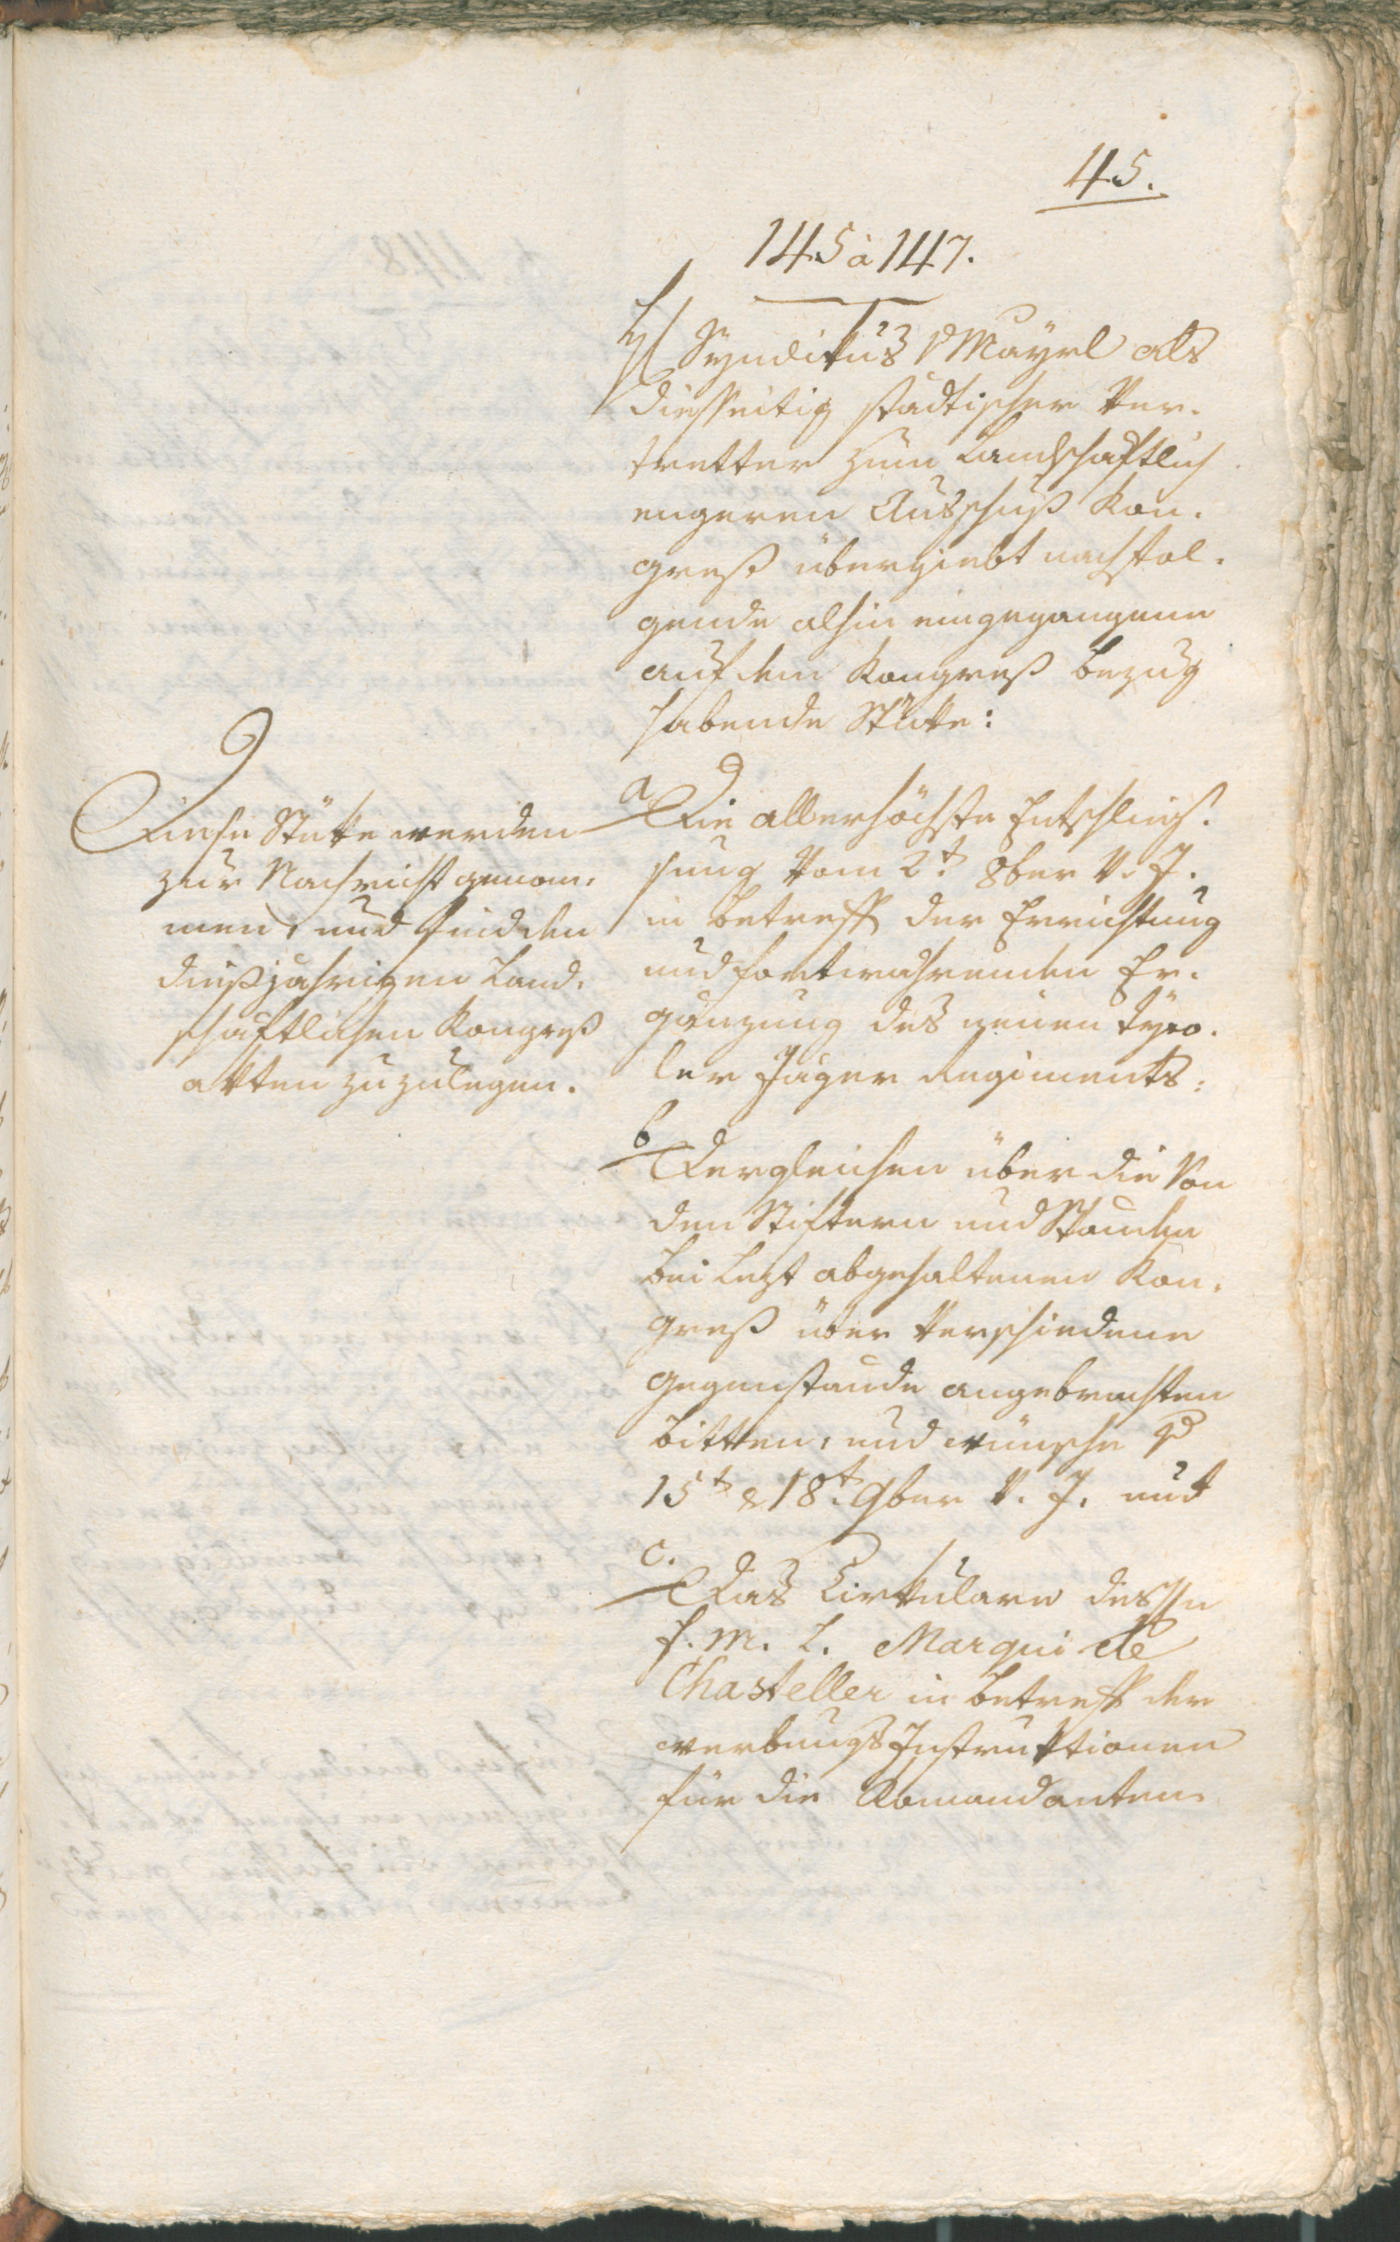 45.
145 à 147.
H Syndikus v Mayrl als
diesseitig städtischer Ver-
tretter zum Landschaftlich
engeren Ausschuß Kon-
greß übergiebt nachfol-
gende alhin eingegangene
auf den Kongreß bezug
habende Stücke:
a Die allerhöchste Entschlies-
sung vom 2t 8ber v. J.
in betreff der Errichtung
und fortwährenden Er-
gänzung des neuen Tyro-
ler Jäger Regiments:
b Dergleichen über die von
den Stiftern und Stände
bei lezt abgehaltenen Kon-
greß über verschiedene
Gegenstände angebrachten
bitten, und wünsche
15t & 18t 9ber v. J. und
c. Das Cirkulare des Hn
F. M. L. Marqui de
Chasteller in betreff der
werbungs Instruktionen
für die Komandanten
Diese Stüke werden
zur Nachricht genom-
men, und sind den
dießjährigen Land-
schaftlichen Kongreß
akten zuzulegen.